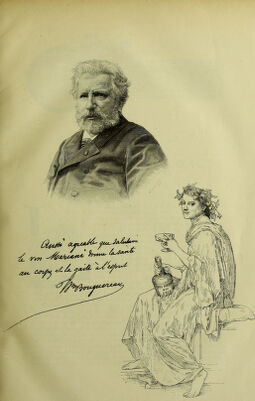 Aussi agréable que salutaire
le vin Mariani donne la santé
au corps et la gaîté à l'esprit
Wm Bouguereau